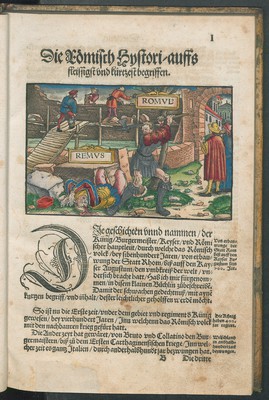 1
Die Römisch Hystori/auffs
fleissigst vnd kürtzest begriffen.
ROMVL'
REMVS
DIe geschichten vnnd nammen/der
Künig/Burgermeister/Keyser/vnd Römi
scher hauptleüt/durch welche das Römisch
volck/bey sibenhundert Jaren/von erbau-
wung der Statt Rhom/biß auff den Key
ser Augustum/den vmbkreiß der welt/vn
dersich bracht habt/Hab ich mir fürgenom-
men/in disem kleinen Büchlin zůbeschreiben/
Damit der schwachen gedechtnuß/mit
kurtzen begriff/vnd inhalt/dester leichtlicher geholffen werde möcht
Von erbau-
wunge der
Statt Rom
biß auff den
So ist nu die Erste zeit/vnder dem gebiet vnd regiment Künig
gewesen/bey vierhundert Jaren/Inn welchem das Römisch volck
mit den nachbauren krieg gefürt hatt.
Die Künig
haben
regiert.
Die Ander zeyt hat gewäret/von Bruto vnd Collatino den Bur-
germaistern/biß zů dem Ersten Carthaginensischen kriege/Inn wel-
cher zeit so gantz Italien/durch anderthalbhundert Jar bezwungen.
B Die dritte